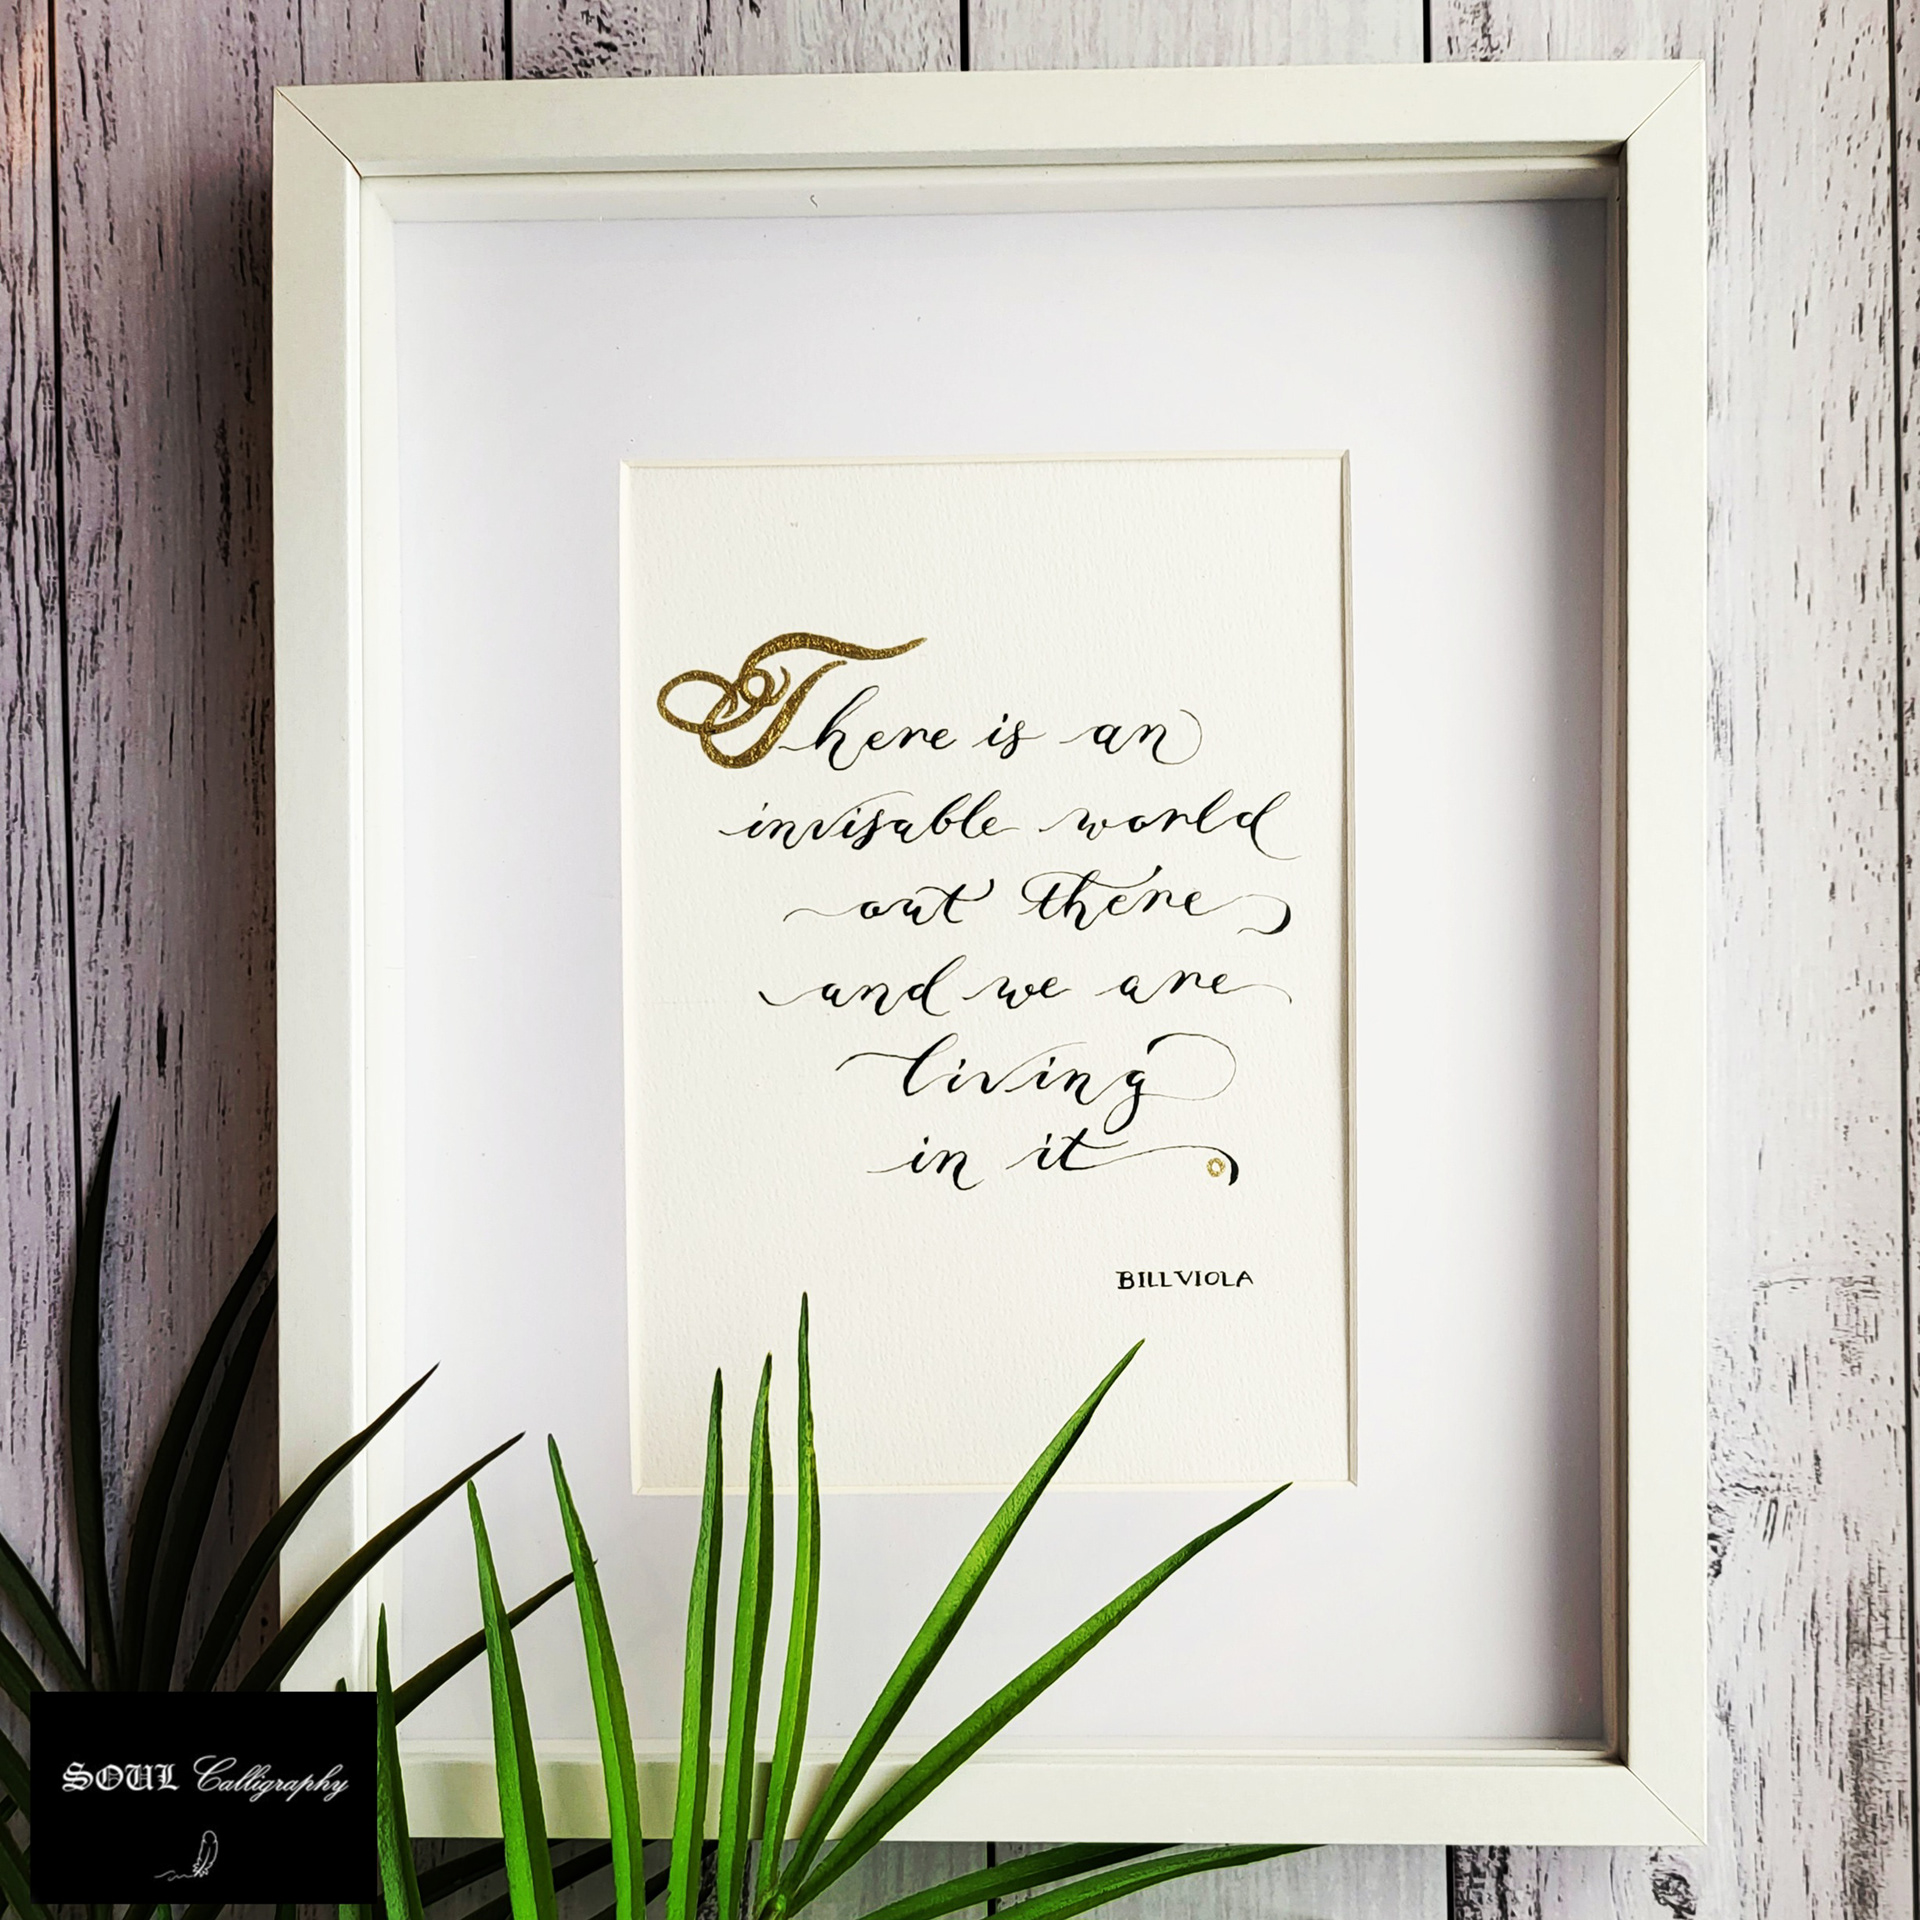 There is an
invisable world
out there
and we are
living
in it
BILL VIOLA
SOUL Calligraphy